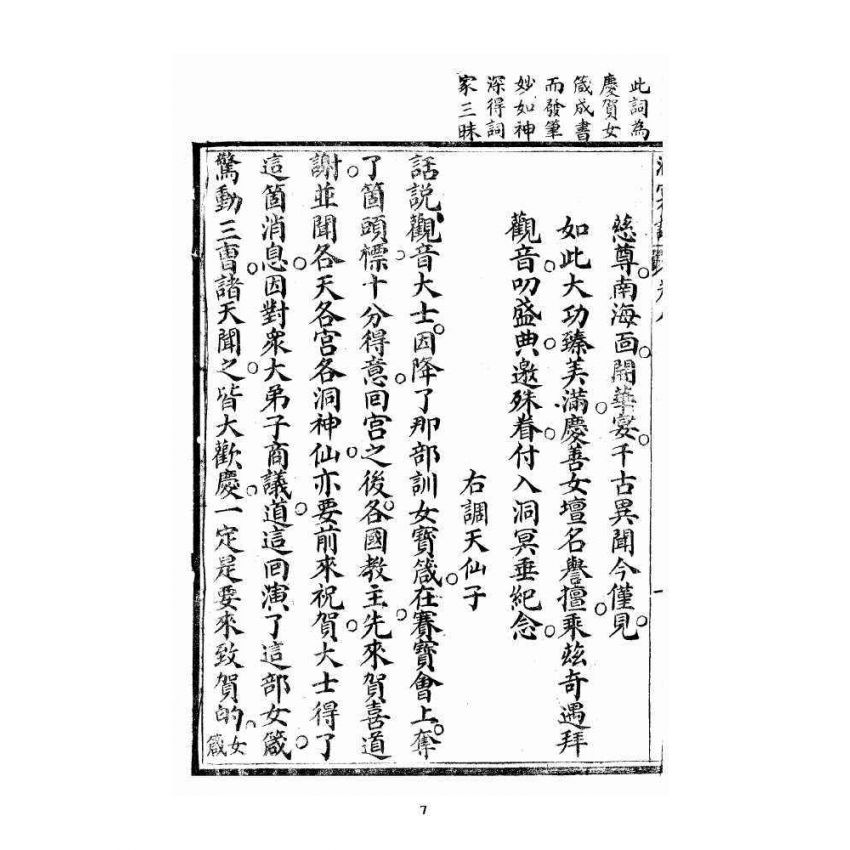 此詞為
慶賀女
箴成書
而發筆
妙如神
深得詞
家三昧
慈尊南海面開華宴千古異聞今僅見
如此大功臻美滿慶善女壇名譽擅乘茲奇遇拜
觀音叨盛典邀殊眷付入洞冥垂紀念
右調天仙子
話說觀音大士因降了那部訓女寶箴在賽寶會上奪
了箇頭標十分得意回宮之後各國教主先來賀喜道
謝並聞各天各宮各洞神仙亦要前來祝賀大士得了
這箇消息因對衆大弟子商議道這回演了這部女箴
驚動三曹諸天聞之皆大歡慶一定是要來致賀的女箴
7